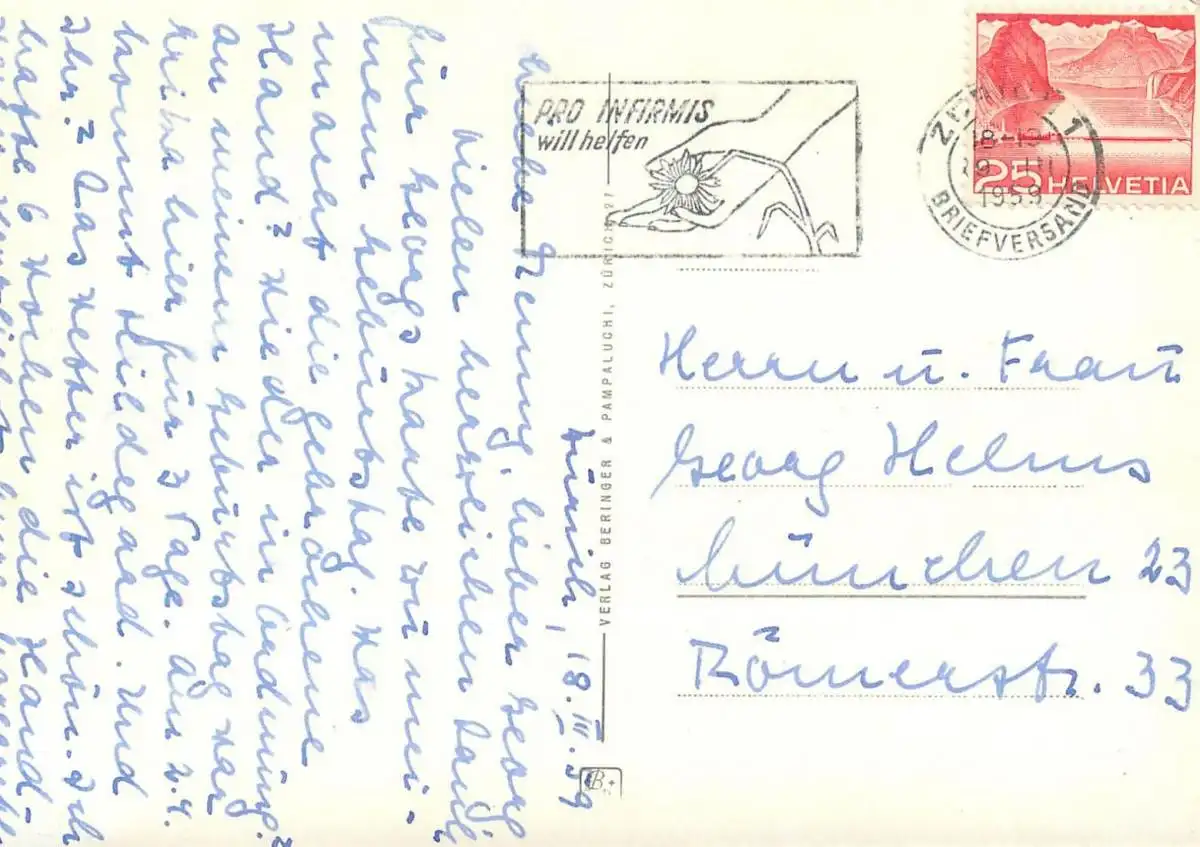 PRO INFIRMIS
will helfen
ZÜRICH 1
18-19
1959
BRIEFVERSAND
25 HELVETIA
VERLAG BERINGER & PAMPALUCHI, ZÜRICH 2/
Herrn u. Frau
Georg Helms
München 23
Römerstr. 33
Zürich, 18. III. 59
Liebe lieber Georg
Vielen herzlichen Dank
für Georgs Karte zu mei-
nem Geburtstag. Was
macht die gebrochene
Hand? Wieder in Ordnung?
An meinem Geburtstag war
Erika hier für 3 Tage. Am 2.4.
kommt Hildegard. Und
Ihr? Das Wetter ist schön. Ich
hatte 6 Wochen die Hand-